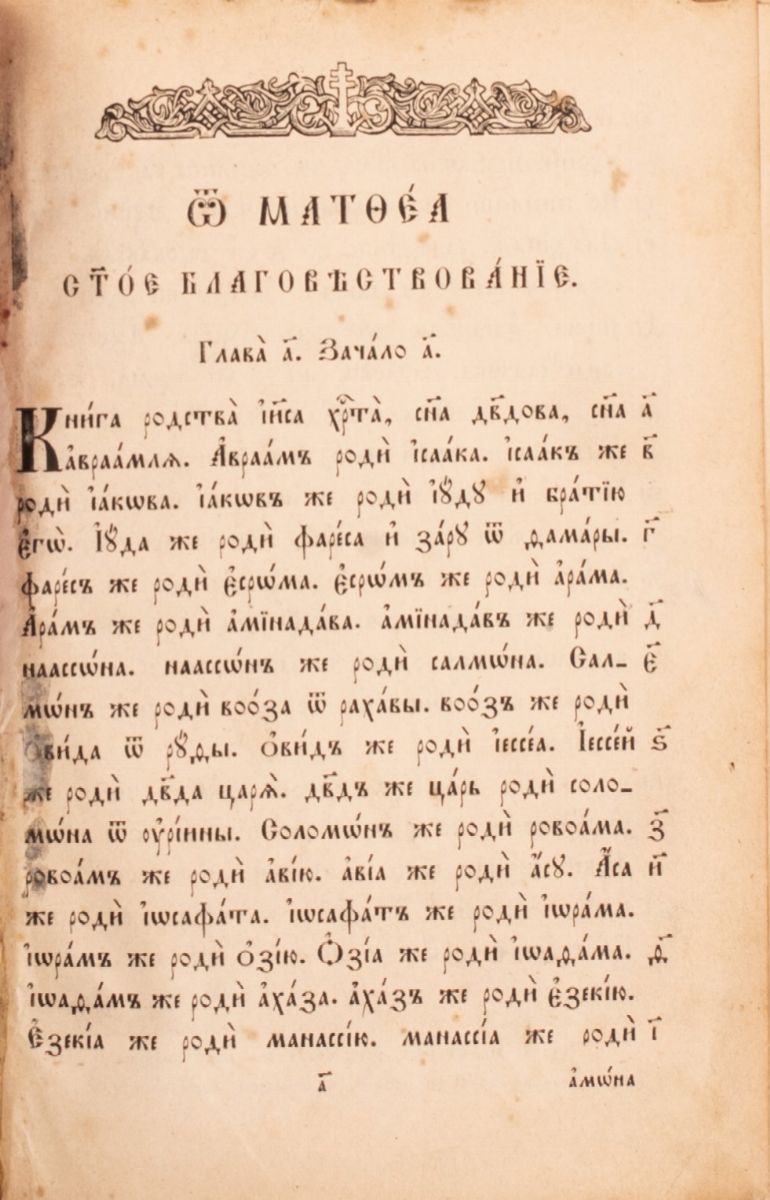 Ѿ МАТѲЕ́А
СТ҃О́Е БЛАГОВѢСТВОВА́НЇЕ.
Глава̀ а҃. Зача́ло а҃.
Кни́га родства̀ і҆и҃са хрⷭ҇та̀, сн҃а дв҃дова, сн҃а а҃
а҆враа́млѧ. А҆враа́мъ родѝ і҆саа́ка. і҆саа́къ же в҃
родѝ і҆а́кѡва. і҆а́кѡвъ же родѝ і҆ꙋ́дꙋ и҆ бра́тїю
є҆гѡ̀. І҆ꙋ́да же родѝ фаре́са и҆ за́рꙋ ѿ ѳама́ры. г҃
фаре́съ же родѝ є҆срѡ́ма. є҆срѡ́мъ же родѝ а҆ра́ма.
А҆ра́мъ же родѝ а҆мїнада́ва. а҆мїнада́въ же родѝ д҃
наассѡ́на. наассѡ́нъ же родѝ салмѡ́на. Сал- є҃
мѡ́нъ же родѝ воо́за ѿ раха́вы. воо́зъ же родѝ
ѻ҆ви́да ѿ рꙋ́ѳы. ѻ҆ви́дъ же родѝ і҆ессе́а. І҆ессе́й ѕ҃
же родѝ дв҃да царѧ̀. дв҃дъ же ца́рь родѝ соло-
мѡ́на ѿ ᲂу҆рі́ины. Соломѡ́нъ же родѝ ровоа́ма. з҃
ровоа́мъ же родѝ а҆ві́ю. а҆ві́а же родѝ а҆́сꙋ. А҆́са и҃
же родѝ і҆ѡсафа́та. і҆ѡсафа́тъ же родѝ і҆ѡра́ма.
і҆ѡра́мъ же родѝ ѻ҆зі́ю. Ѻ҆зі́а же родѝ і҆ѡаѳа́ма. ѳ҃
і҆ѡаѳа́мъ же родѝ а҆ха́за. а҆ха́зъ же родѝ є҆зекі́ю.
Є҆зекі́а же родѝ манассі́ю. манассі́а же родѝ і҃
а҃ а҆мѡ́на